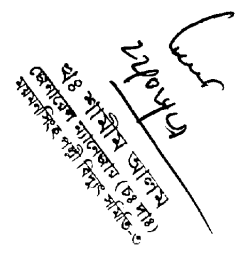 ২২/০৫/২৩
মোঃ শামীম আলম
জেনারেল ম্যানেজার (চঃ দাঃ)
ময়মনসিংহ পল্লী বিদ্যুৎ সমিতি-৩